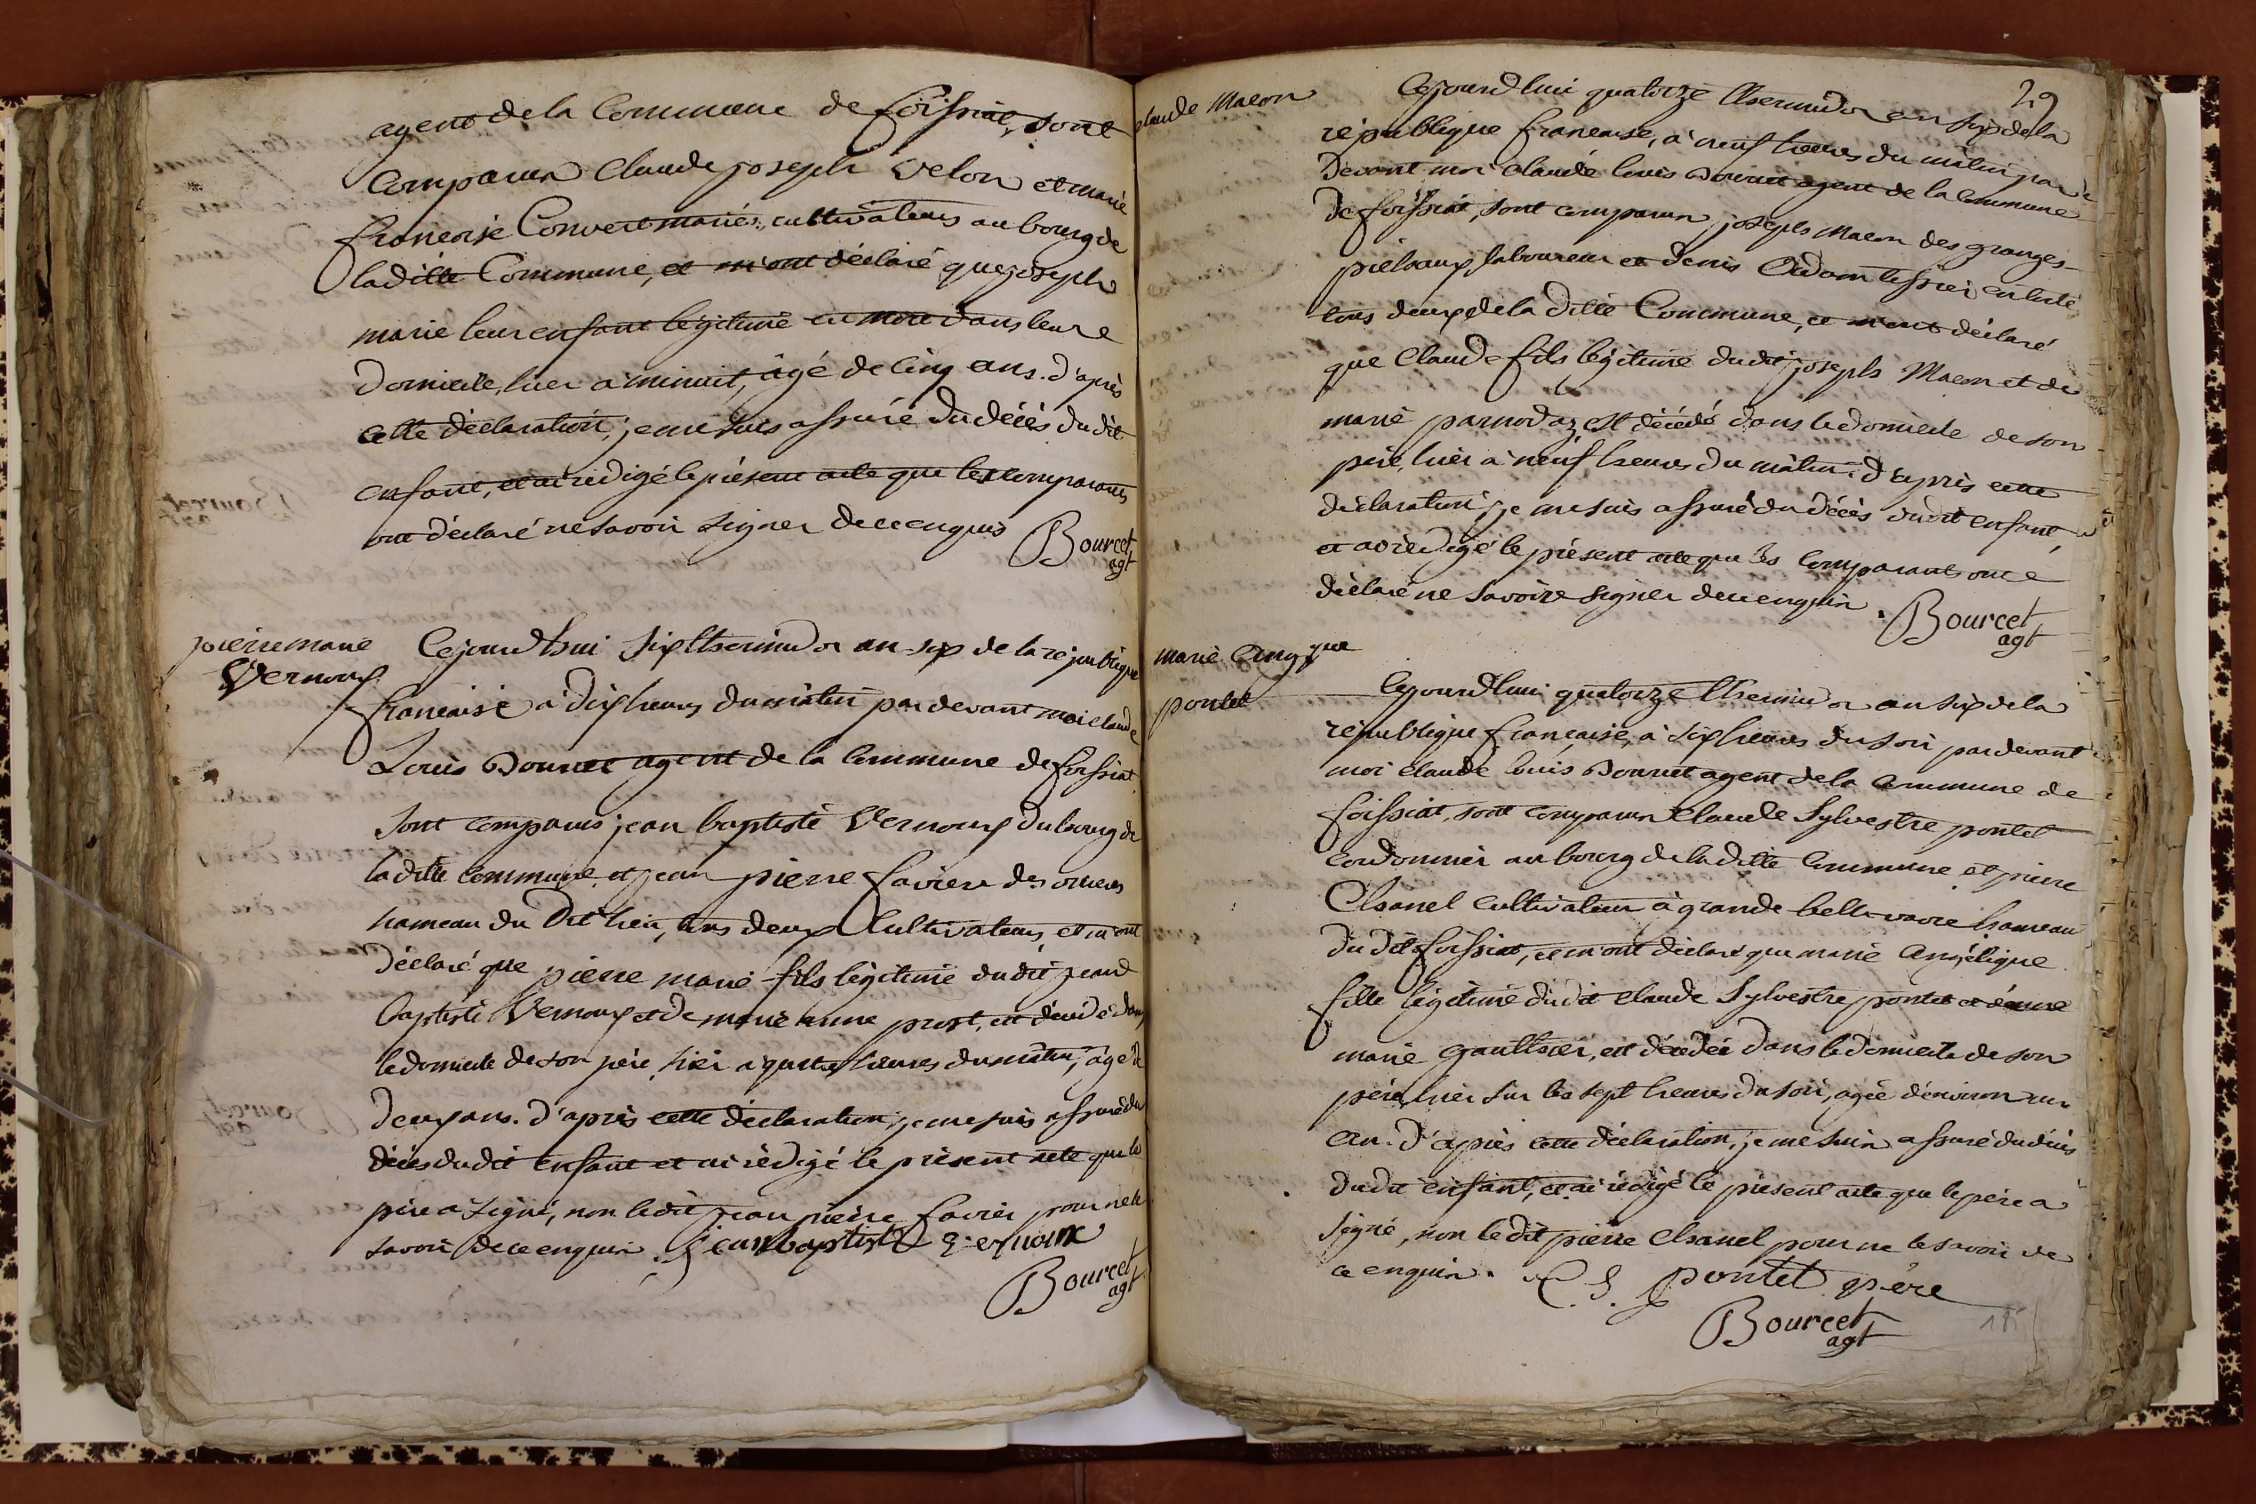 agent de la Commune de foissiat, sont
Comparus Claude joseph Velon et marie
francoise Convert mariés, cultivateurs au bourg de
laditte Commune, et m'ont déclaré que joseph
marie leur enfant légitime est mort dans leur
Domicile, hier a minuit, âgé de cinq ans. d'après
cette déclaration, je me suis assuré du décès dudit
enfant, et ai rédigé le présent acte que les comparants
ont déclaré ne savoir signer de ce enquis
Bourcet
agt
pierre marie
Vernoux
Cejourd'hui six thermidor an six de la république
francaise à dix heures du matin pardevant moi claude
Louis Bourcet agent de la Commune de foissiat,
sont comparus jean baptiste Vernoux du bourg de
laditte commune et jean pierre favier des
hameau du Dit lieu, tous deux Cultivateurs, et m'ont
Déclaré que pierre marie fils légitime dudit jean
Baptiste Vernoux et de marie anne prost, est décédé dans
le domicile de son père, hier a quatre heures du matin, âgé de
deux ans. d'après cette déclaration, je me suis assuré du
décès dudit enfant et ai rédigé le présent acte que le
père a signé, non le dit jean pierre favier pour ne le
savoir de ce enquis. jean baptiste vernoux
Bourcet
agt
29
claude Macon
Cejourd'hui quatorze thermidor an six de la
république francaise, à neuf heures du matin par
Devant moi Claude louis Bourcet agent de la Commune
de foissiat, sont comparus joseph Macon des granges
laboureur et denis Adam tissier
tous deux de la ditte Commune, et m'ont déclaré
que Claude fils légitime dudit joseph Macon et de
marie parnodaz, est décédé dans le domicile de son
père, hier à neuf heures du matin. d'après cette
déclaration, je me suis assuré du décès dudit enfant,
et ai rédigé le présent acte que les comparants ont
déclaré ne savoir signer de ce enquis.
Bourcet
agt
marie Angque
pontet
Cejourd'hui quatorze thermidor an six de la
république francaise, à six heures du soir pardevant
moi claude louis Bourcet agent de la Commune de
foissiat, sont comparus Claude Sylvestre pontet
cordonnier au bourg de laditte Commune et pierre
Chanel cultivateur à grande bellevavre hameau
du dit foissiat, et m'ont déclaré que marie Angélique
fille légitime dudit Claude Sylvestre pontet et de
marie gaulthier, est décédée dans le domicile de son
père, hier sur les sept heures du soir, agée d'environ un
an. D'après cette déclaration, je me suis assuré du décès
dudit enfant, et ai rédigé le présent acte que le père a
signé, non le dit pierre Chanel pour ne le savoir de
ce enquis. C. S. pontet père
Bourcet
agt